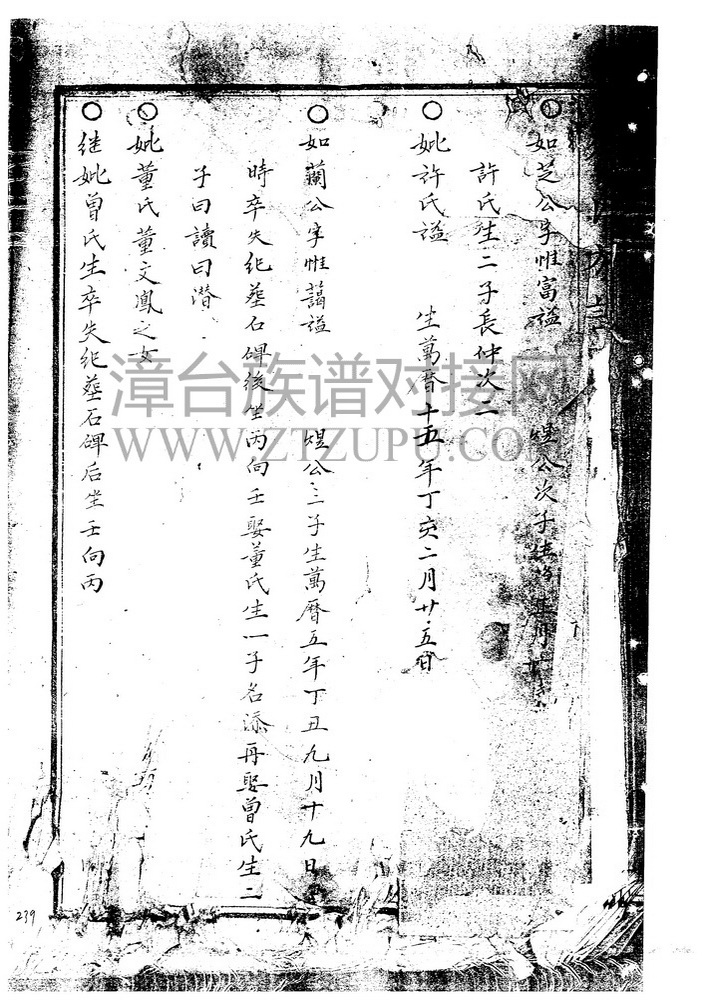 ○如芝公字惟富謚 煜公次子
許氏生二子長仲次一
○妣許氏謚 生萬曆十五年丁亥二月廿五日
○如蘭公字惟藹謚 煜公三子生萬曆五年丁丑九月十九日
時卒失紀葬石碑後坐丙向壬娶董氏生一子名添再娶曾氏生二
子曰讀曰潛
○妣董氏董文鳳之女
○继妣曾氏生卒失紀葬石碑后坐壬向丙
漳台族谱对接网
WWW.ZTZUPU.COM
239